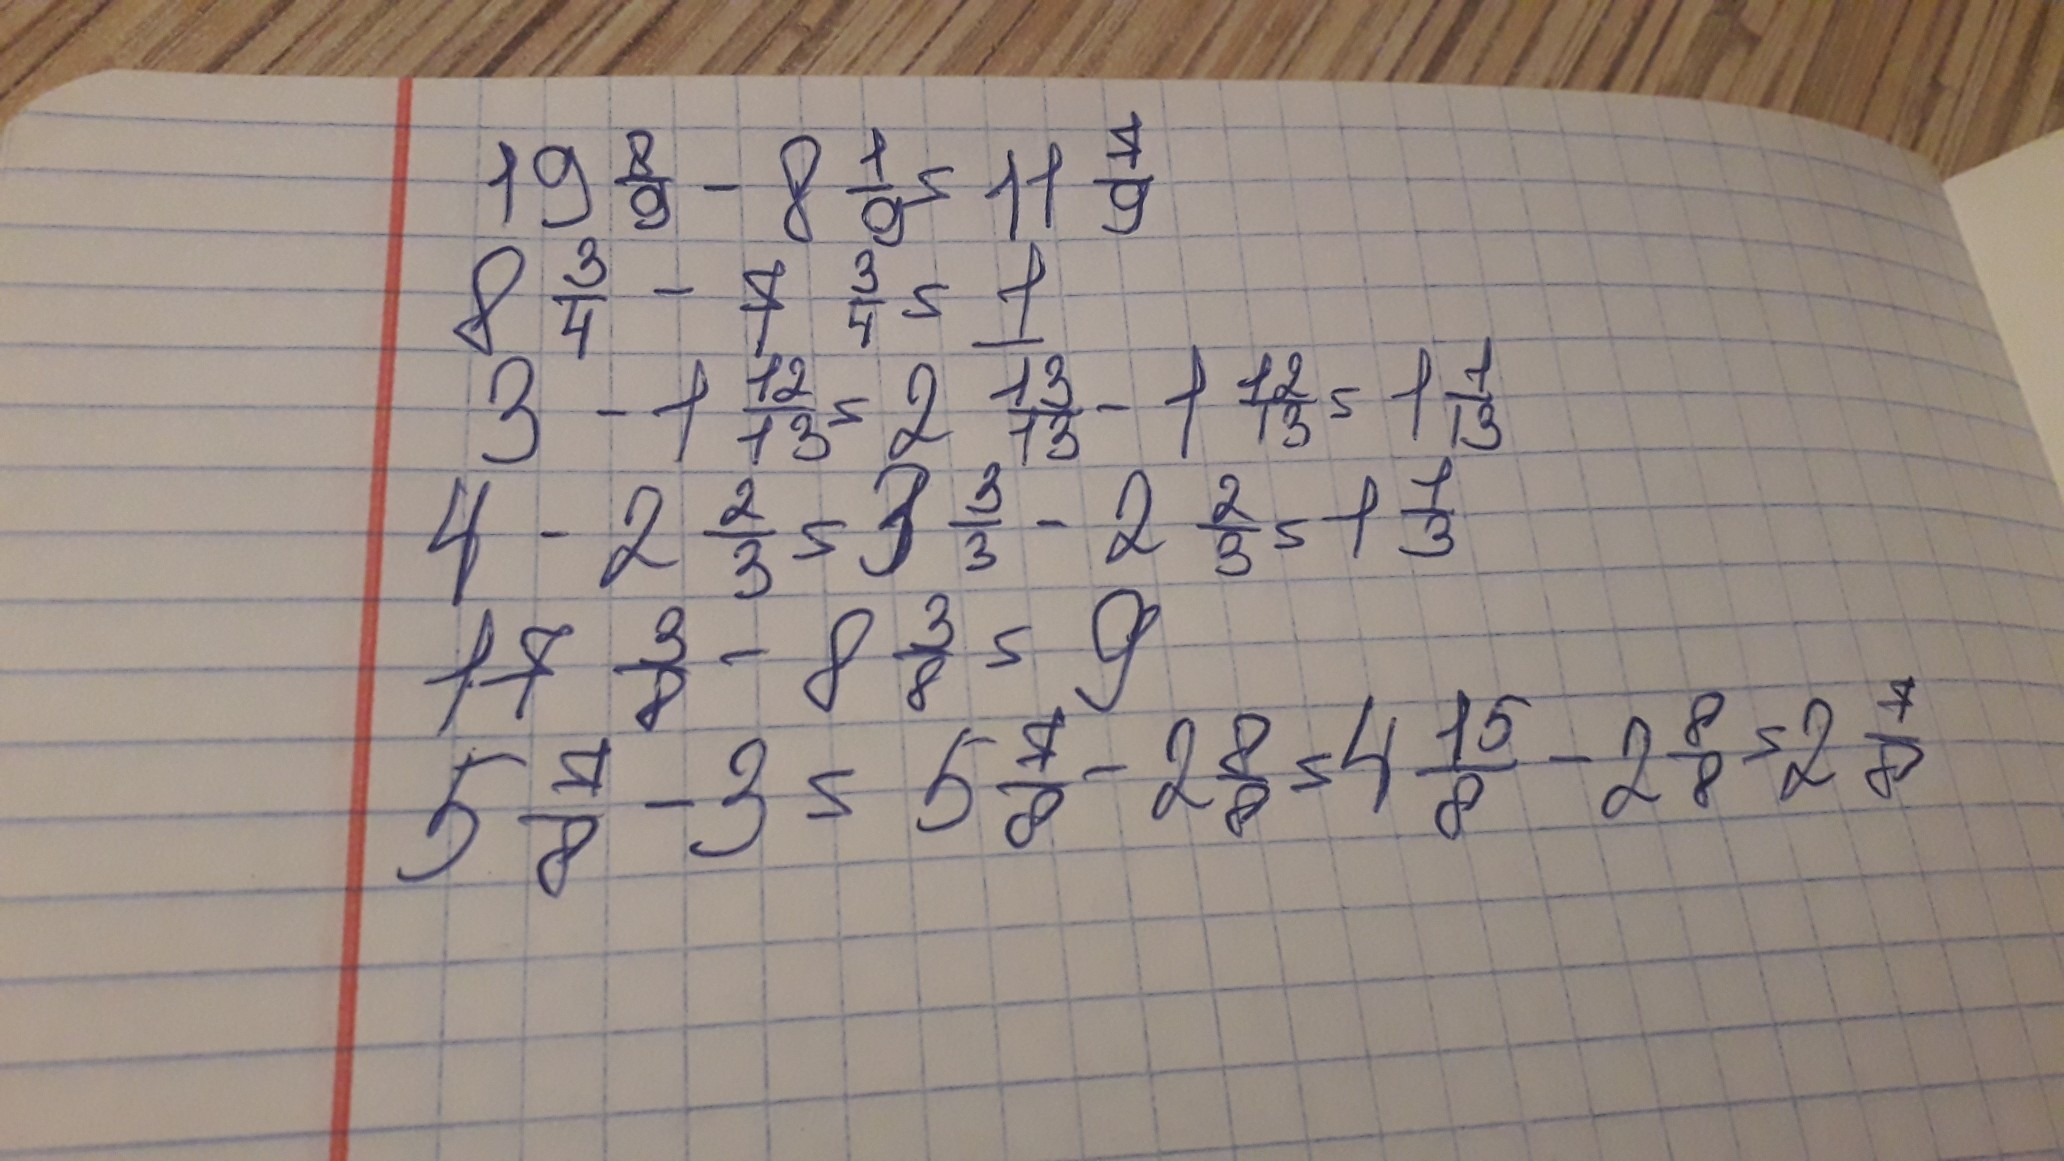 19 8/9 - 8 1/9 = 11 7/9
8 3/4 - 7 3/4 = 1
3 - 1 12/13 = 2 13/13 - 1 12/13 = 1 1/13
4 - 2 2/3 = 3 3/3 - 2 2/3 = 1 1/3
17 3/8 - 8 3/8 = 9
5 7/8 - 3 = 5 7/8 - 2 8/8 = 4 15/8 - 2 8/8 = 2 7/8